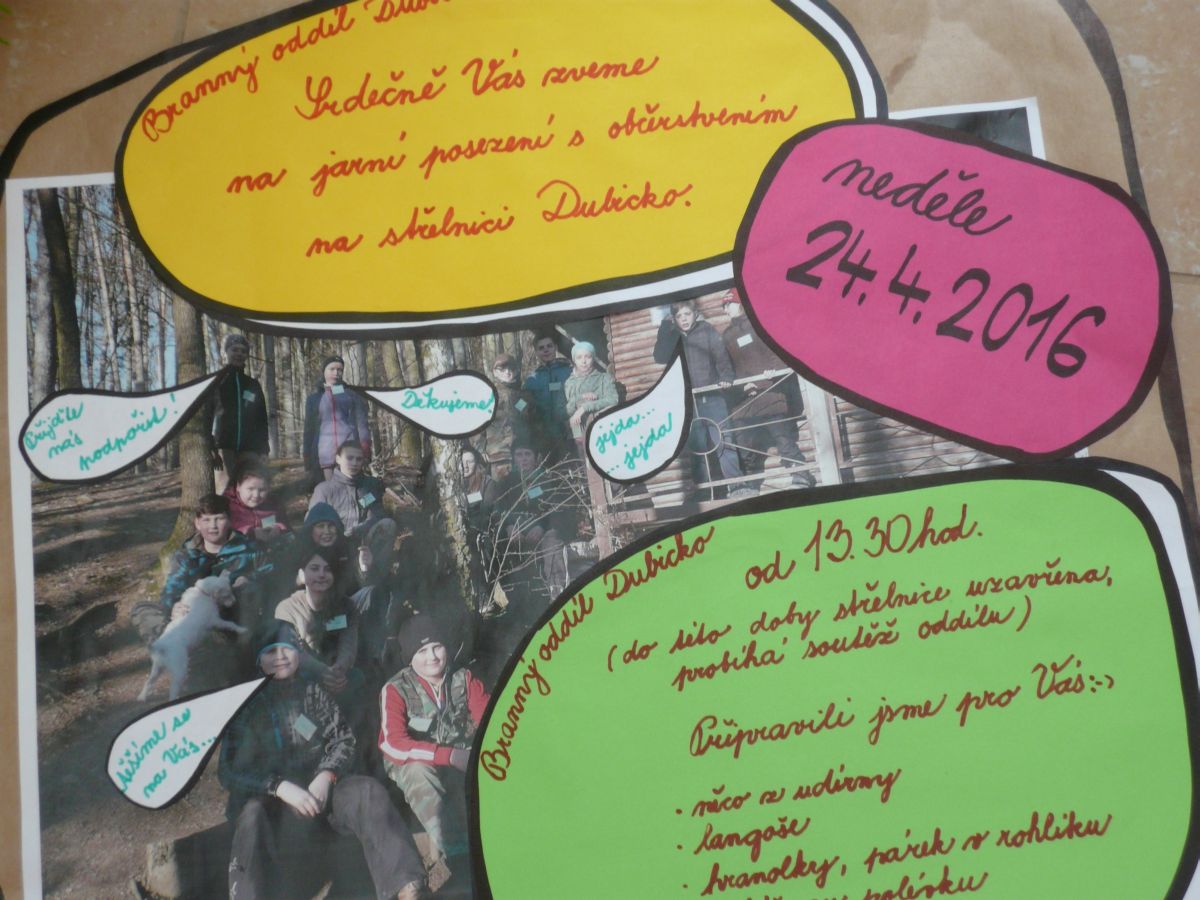 Branný oddíl
Srdečně Vás zveme
na jarní posezení s občerstvením
na střelnici Dubicko.
neděle
24.4.2016
Přijďte
nás
podpořit!
Děkujeme!
jejda...
...jejda
těšíme se
na Vás...
Branný oddíl Dubicko
od 13.30 hod.
(do této doby střelnice uzavřena,
probíhá soutěž oddílu)
Připravili jsme pro Vás:-)
· něco z udírny
· langoše
· hranolky, párek v rohlíku
polévku